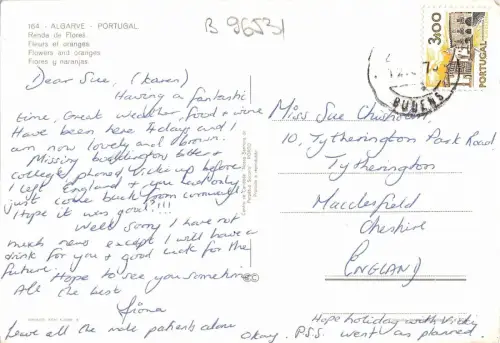 164 - ALGARVE - PORTUGAL
Renda de Flores
Fleurs et oranges
Flowers and oranges
Flores y naranjas
B 96531
3$00
PORTUGAL
BUDENS
Dear Sue, (Karen)
Having a fantastic
time, Great weather, food & wine
Have been here 4 days and I
am now lovely and brown.
Missing
college, phoned Vicki up before
I left England & you had only
just come back from
I hope it was good!!!
Well sorry I have not
much news except I will have a
drink for you & good luck for the
future.
Hope to see you sometime
All the best
Fiona
Leave all the male patients alone
Miss Sue
10, Tytherington Park Road
Tytherington
Macclesfield
Cheshire
ENGLAND
Hope holiday with Vicki
Okay. P.S.S. went as planned.